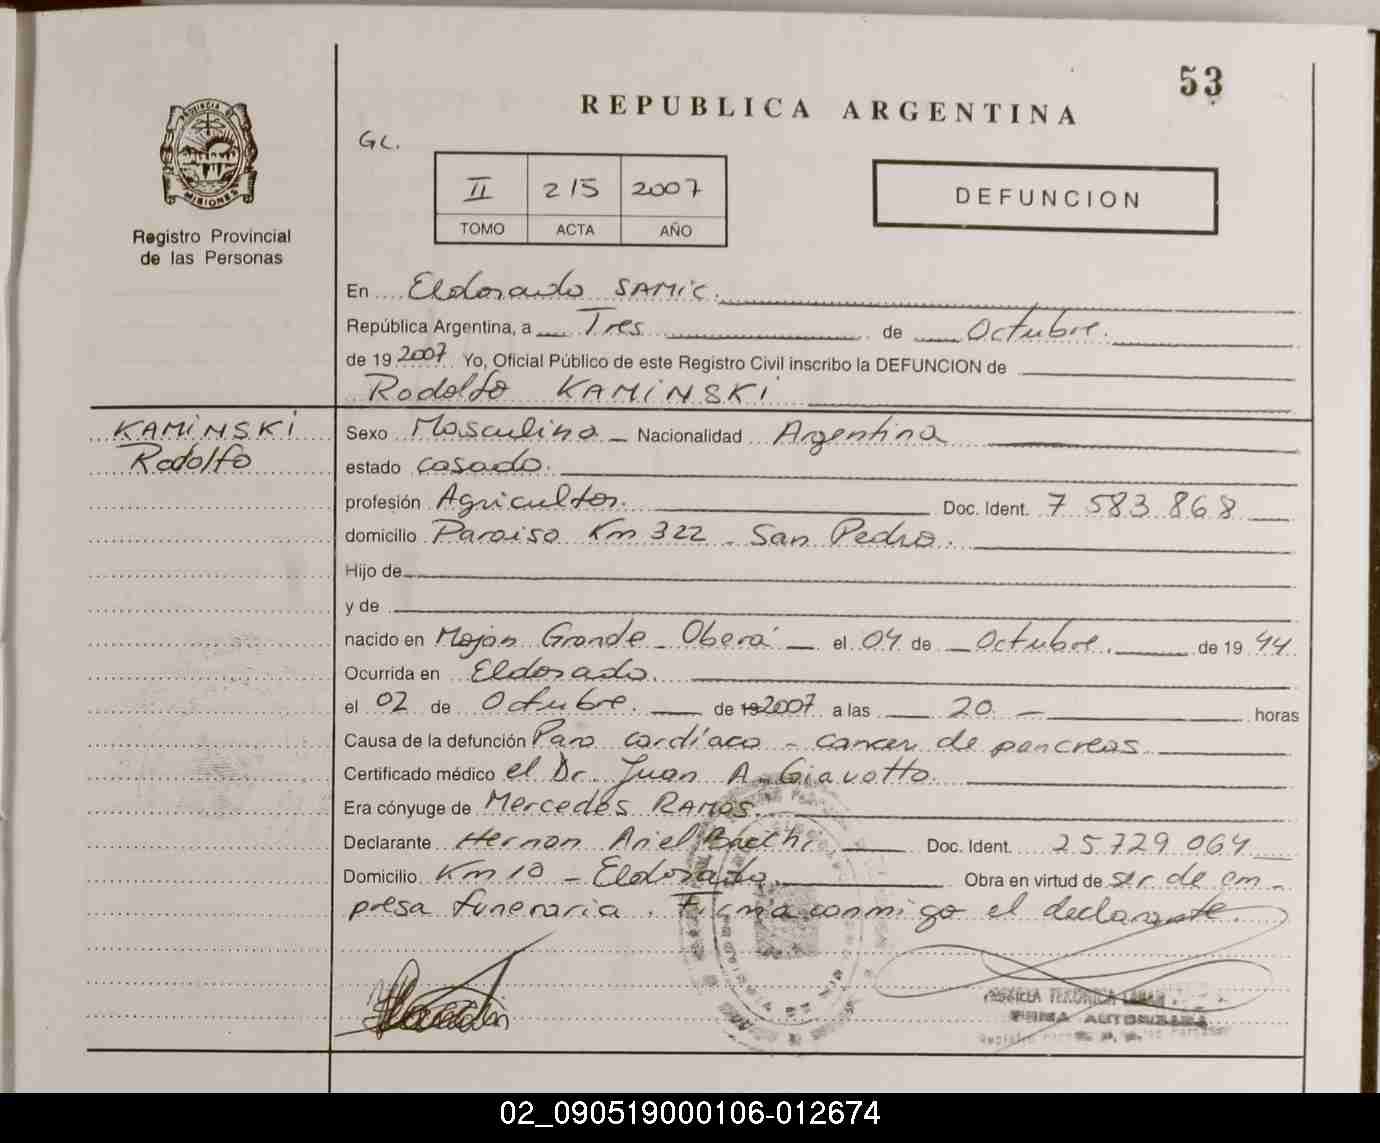 53
REPUBLICA ARGENTINA
GL.
PROVINCIA DE
MISIONES
Registro Provincial
de las Personas
II 215 2007
TOMO ACTA AÑO
DEFUNCION
En Eldorado SAMIC.
República Argentina, a Tres de Octubre.
de 19 2007 Yo, Oficial Público de este Registro Civil inscribo la DEFUNCION de
Rodolfo KAMINSKI
KAMINSKI
Rodolfo
Sexo Masculino Nacionalidad Argentina
estado casado.
profesión Agricultor. Doc. Ident. 7 583 868
domicilio Paraiso Km 322 - San Pedro.
Hijo de
y de
nacido en Mojon Grande - Oberá el 04 de Octubre. de 19 44
Ocurrida en Eldorado.
el 02 de Octubre. de 19 2007 a las 20 - horas
Causa de la defunción Paro cardíaco - cancer de pancreas
Certificado médico el Dr. Juan A. Giavotto.
Era cónyuge de Mercedes RAMOS.
Declarante Hernan Ariel Doc. Ident. 25 729 064
Domicilio Km 10 - Eldorado. Obra en virtud de ser de em-
presa funeraria. Firma conmigo el declarante.
FIRMA AUTORIZADA
02_090519000106-012674